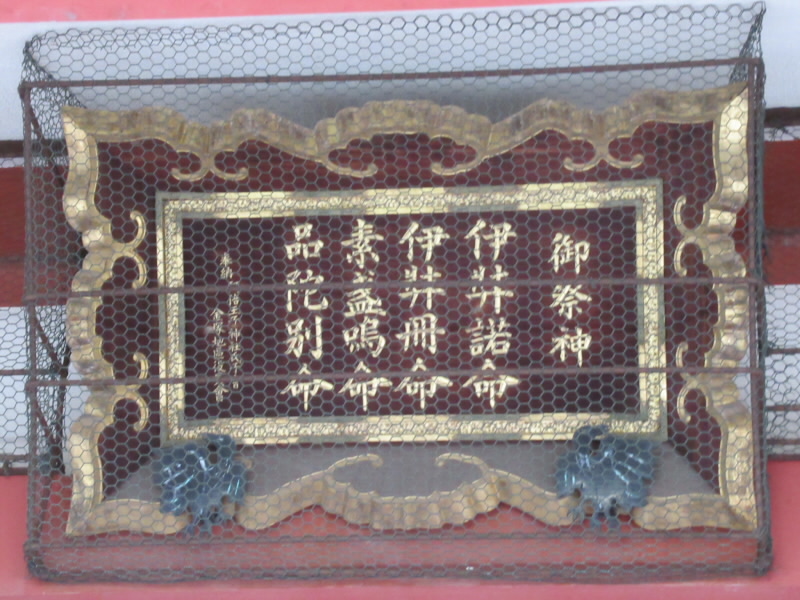 御祭神
伊弉諾命
伊弉冊命
素盞嗚命
品陀別命
奉納